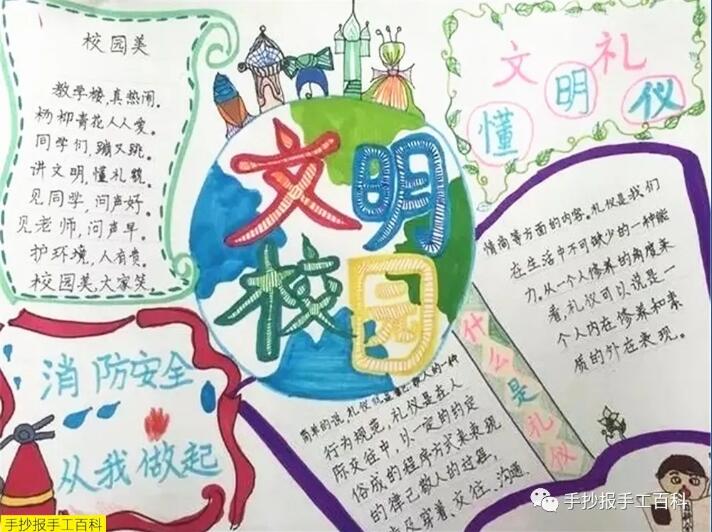 校园美
教学楼,真热闹。
杨柳青花人人爱。
同学们,蹦又跳。
讲文明,懂礼貌。
见同学,问声好。
见老师,问声早。
护环境,人有责。
校园美,大家笑。
文明
校园
文明礼
懂 仪
情商等方面的内容。礼仪是我们
在生活中不可缺少的一种能
力。从一个人修养的角度来
看,礼仪可以说是一
个人内在修养和素
质的外在表现。
什么是礼仪
消防安全
从我做起
简单的说,礼仪 人的一种
行为规范,礼仪是在人
际交往中,以一定的约定
俗成的程序方式来表现
的律己敬人的过程,
穿着、交往、沟通、
手抄报手工百科
手抄报手工百科